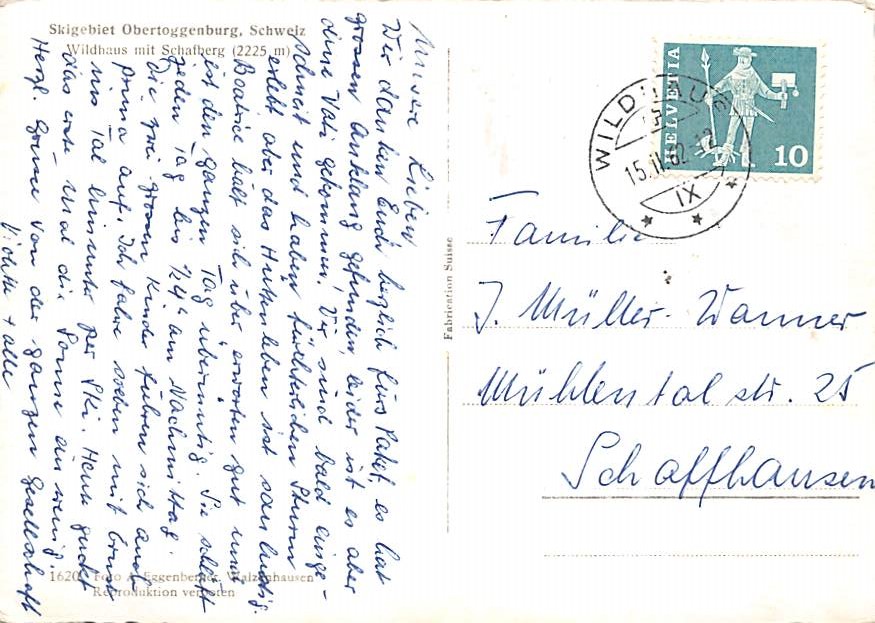 Skigebiet Obertoggenburg, Schweiz
Wildhaus mit Schafberg (2225 m)
Unsere Lieben
Wir danken Euch herzlich fürs Paket, es hat
grossen Anklang gefunden, leider ist es aber
ohne Vati gekommen. Wir sind bald einge-
schneit und haben fürchterlichen Sturm
erlebt aber das Hüttenleben ist sau lustig.
Beatrice hält sich über erwarten gut und
ist den ganzen Tag übermütig. Sie schläft
jeden Tag bis 1/2 4 h am Nachmittag.
Die zwei grossen Kinder führen sich auch
prima auf. Ich fahre soeben mit
ins Tal hinunter per Ski. Heute guckt
das erste Mal die Sonne ein wenig.
Herzl. Grüsse von der ganzen Gesellschaft
+ alle
1620 Foto A. Eggenberger, Walzenhausen
Reproduktion verboten
Fabrication Suisse
HELVETIA
10
WILDHAUS
15.II.62-12
IX
Familie
J. Müller-Wanner
Mühlentalstr. 25
Schaffhausen